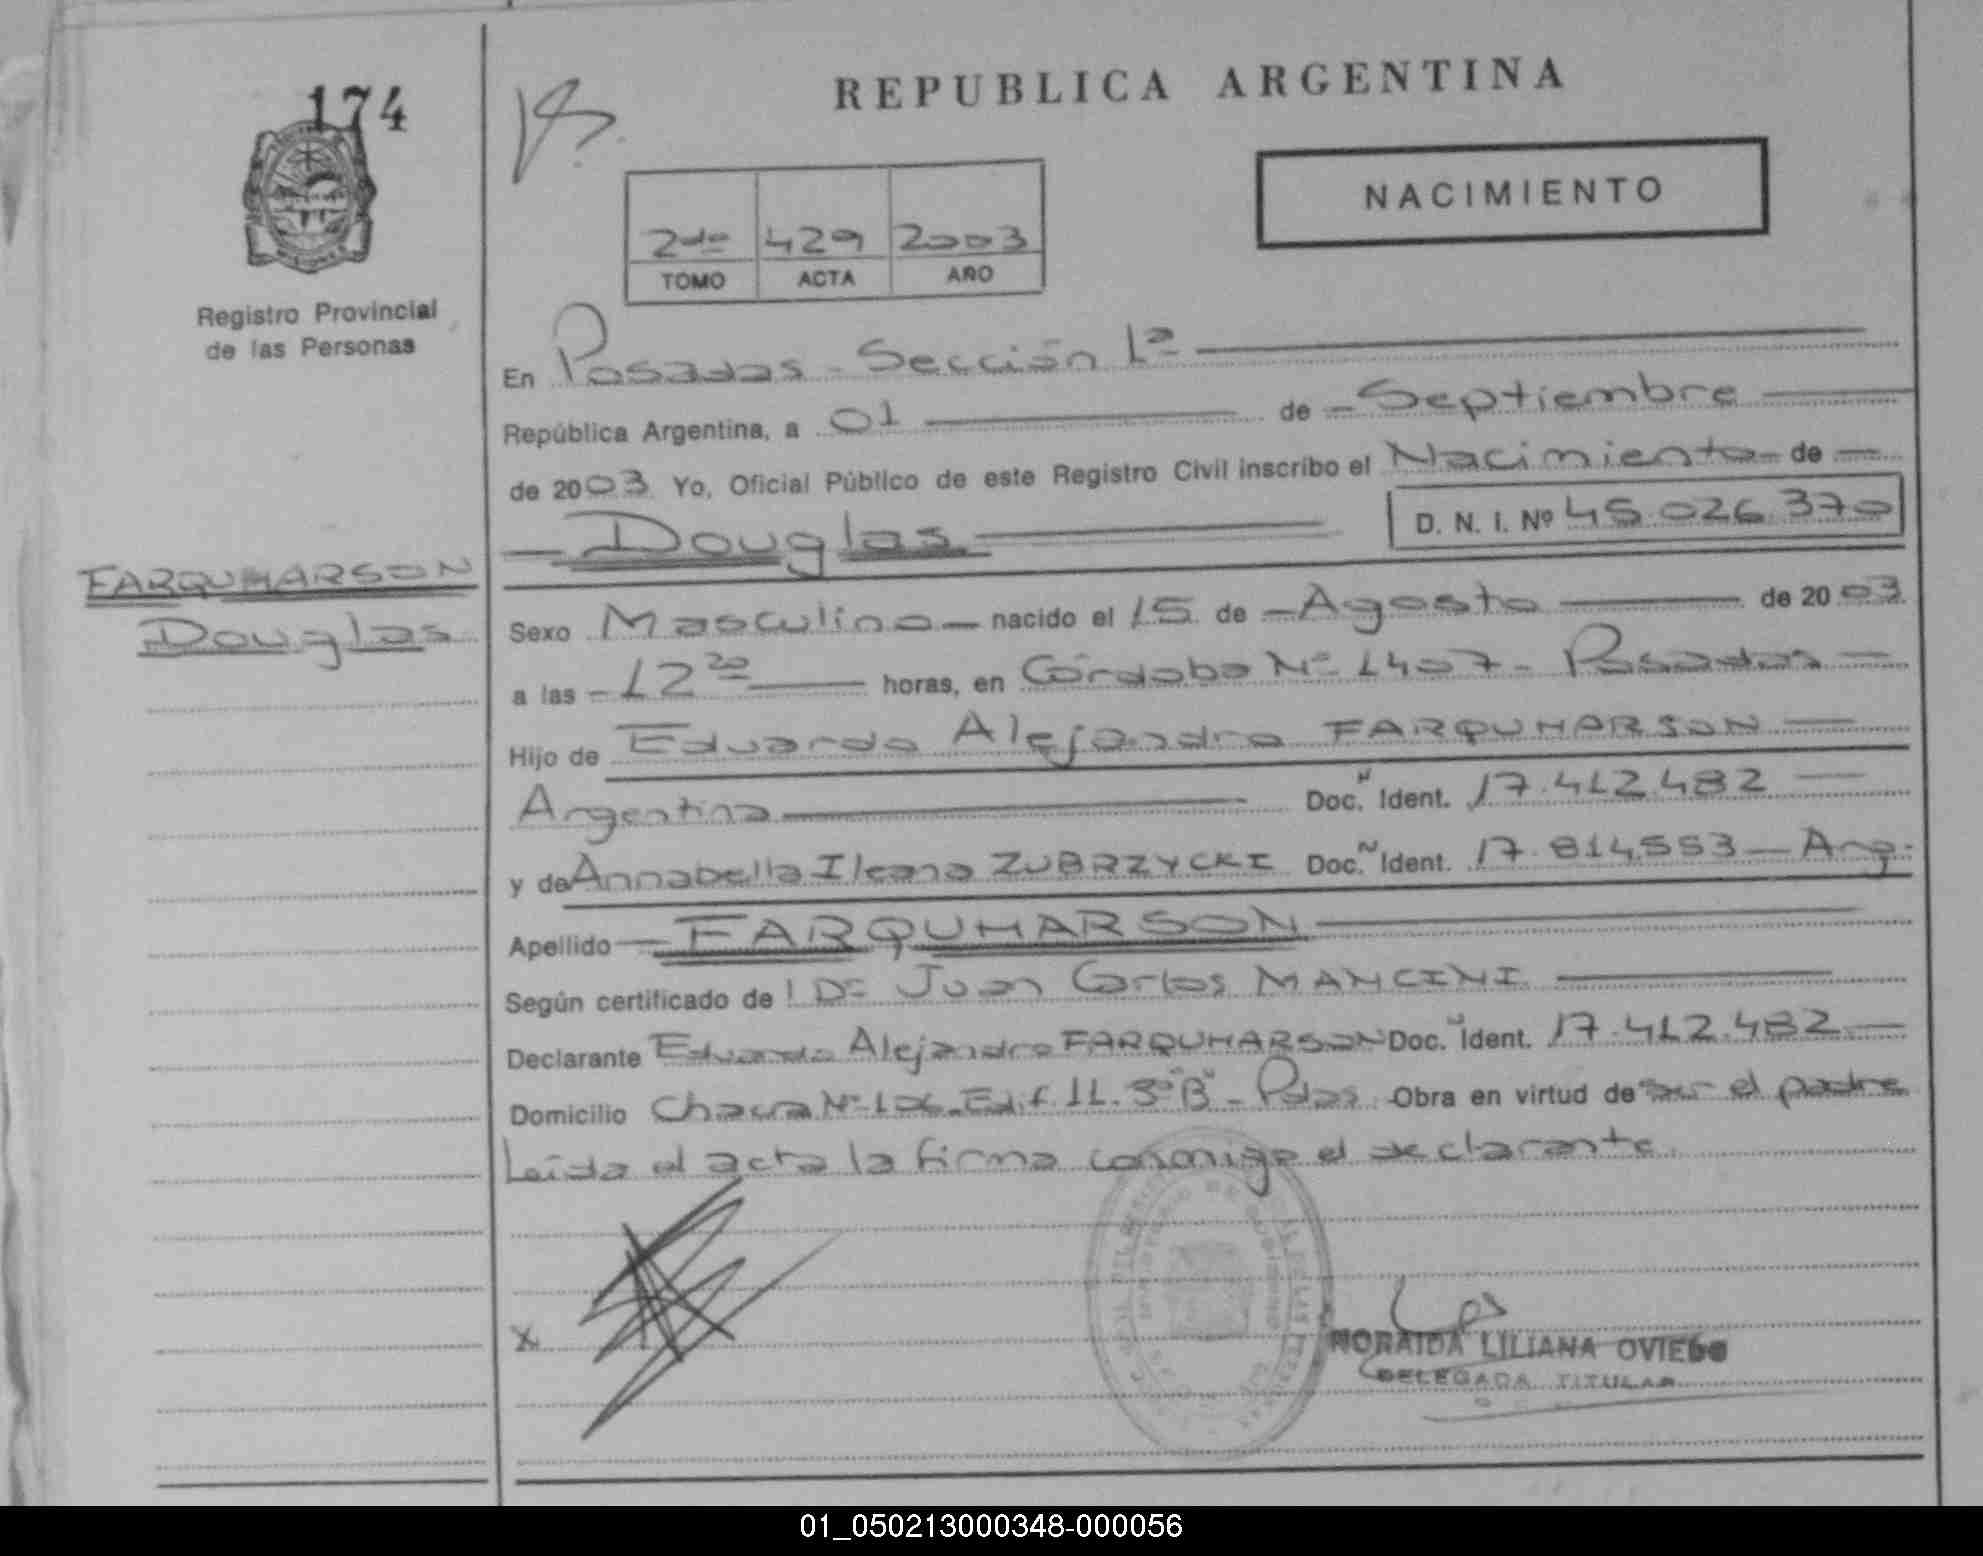 174
REPUBLICA ARGENTINA
NACIMIENTO
2do 429 2003
TOMO ACTA AÑO
Registro Provincial
de las Personas
En Posadas - Sección 1ª
República Argentina, a 01 de Septiembre
de 2003 Yo, Oficial Público de este Registro Civil inscribo el Nacimiento de
Douglas D. N. I. Nº 45.026.370
FARQUHARSON
Douglas
Sexo Masculino nacido el 15 de Agosto de 2003
a las 12 20 horas, en Córdoba Nº 1407 - Posadas
Hijo de Eduardo Alejandro FARQUHARSON
Argentina Doc. N Ident. 17.412.482
y de Annabella Ileana ZUBRZYCKI Doc. N Ident. 17.814.553 - Arg.
Apellido FARQUHARSON
Según certificado de Dr Juan Carlos MANCINI
Declarante Eduardo Alejandro FARQUHARSON Doc. N Ident. 17.412.482
Domicilio Chacra Nº 106 - Edif. 11. 3º "B" - Pdas. Obra en virtud de ser el padre
Leída el acta la firma conmigo el declarante.
X
NORAIDA LILIANA OVIEDO
DELEGADA TITULAR
01_050213000348-000056